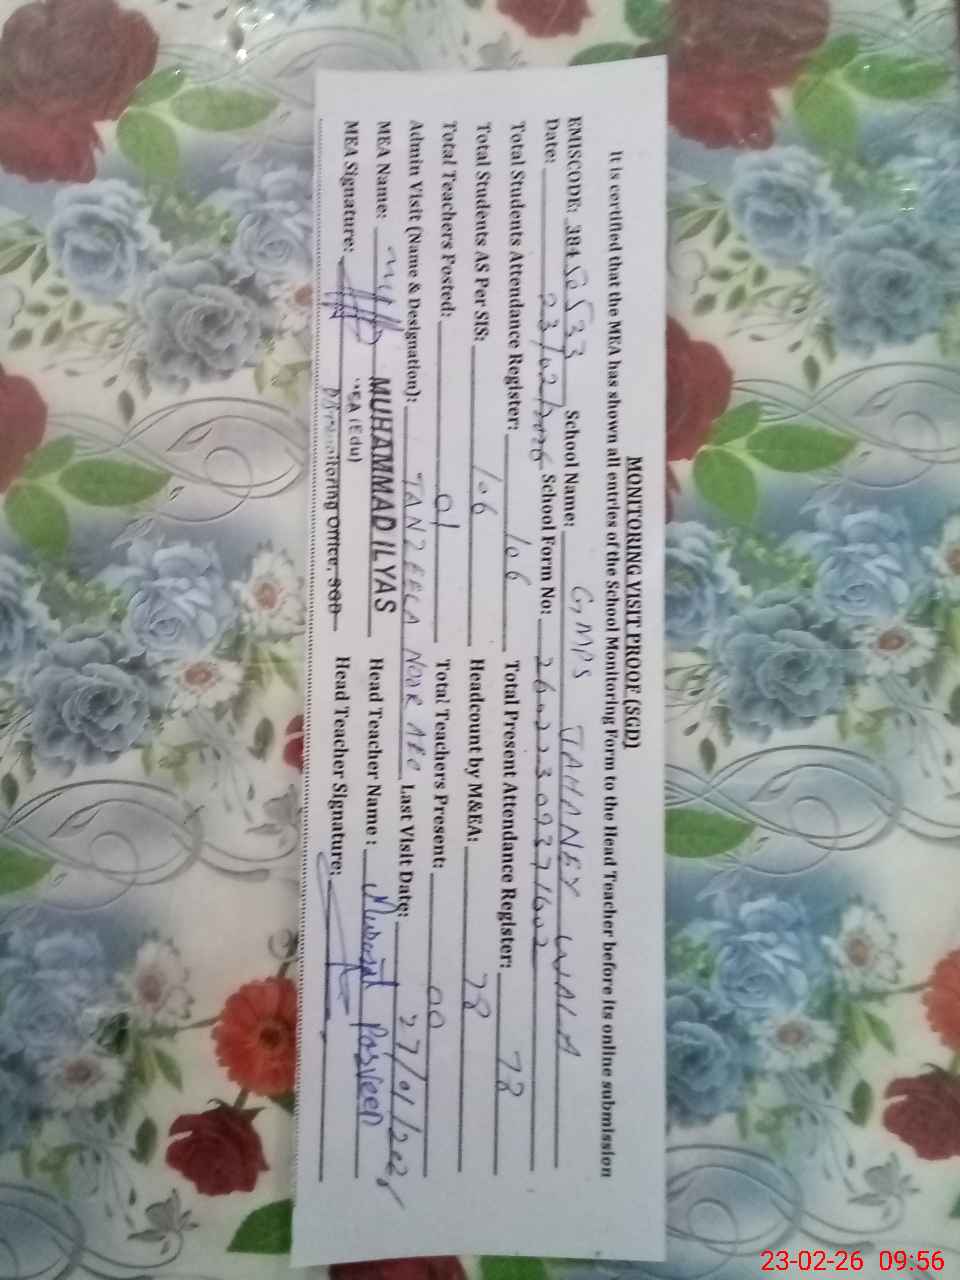 MONITORING VISIT PROOF (SGD)
It is certified that the MEA has shown all entries of the School Monitoring Form to the Head Teacher before its online submission
EMISCODE: 38450533 School Name: GMPS JAHANEY WALA
Date: 23/02/2026 School Form No: 26022309371602
Total Students Attendance Register: 106 Total Present Attendance Register: 78
Total Students AS Per SIS: 106 Headcount by M&EA: 78
Total Teachers Posted: 01 Total Teachers Present: 00
Admin Visit (Name & Designation): TANZEELA NOOR AEO Last Visit Date: 27/01/2026
MEA Name: MUHAMMAD ILYAS Head Teacher Name: Parveen
MEA (Edu)
MEA Signature: Monitoring Office, SGD Head Teacher Signature:
23-02-26 09:56